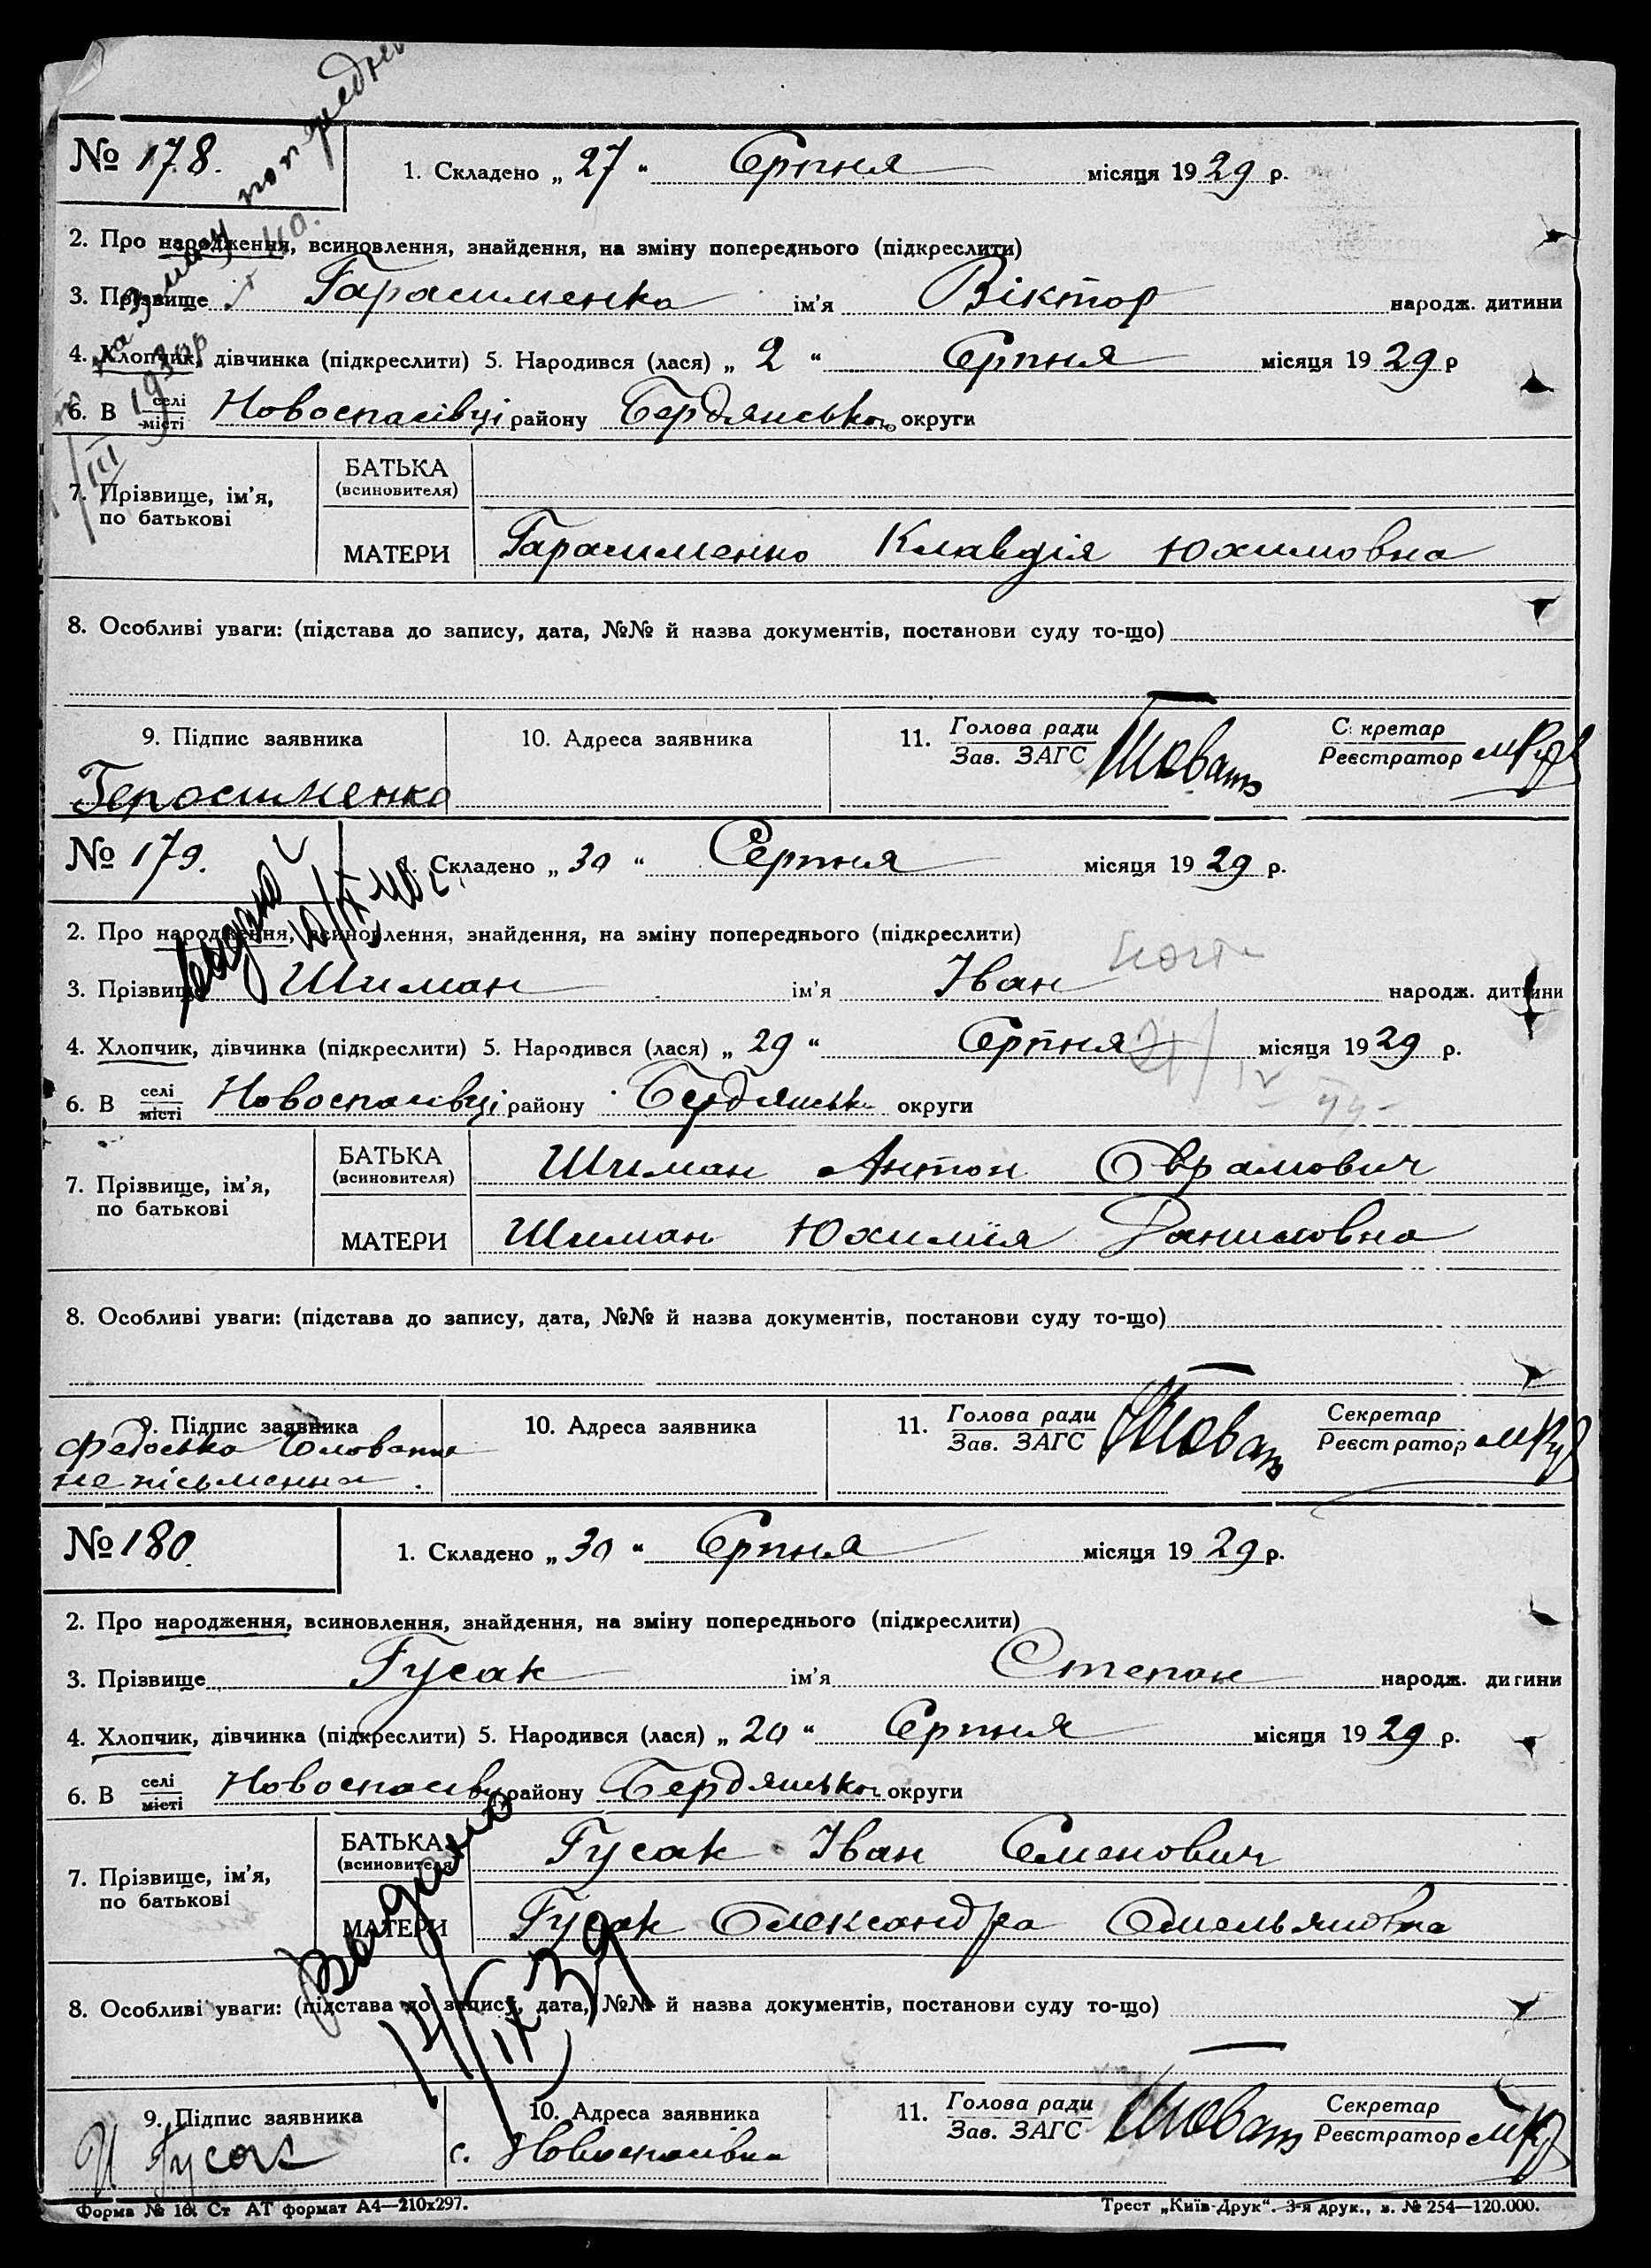 № 178. 1. Складено „ 27 “ Серпня місяця 19 29 р.
2. Про народження, всиновлення, знайдення, на зміну попереднього (підкреслити)
3. Прізвище Гарасименко ім'я Віктор народж. дитини
4. Хлопчик, дівчинка (підкреслити) 5. Народився (лася) „ 2 “ Серпня місяця 19 29 р
6. В селі місті Новоспасівці району Бердянсько округи
7. Прізвище, ім'я, по батькові
БАТЬКА (всиновителя)
МАТЕРИ Гарасименко Клавдія Юхимовна
8. Особливі уваги: (підстава до запису, дата, №№ й назва документів, постанови суду то-що)
9. Підпис заявника 10. Адреса заявника 11. Голова ради Зав. ЗАГС С кретар Реєстратор
Геросименко
№ 179. Складено „ 30 “ Серпня місяця 19 29 р.
видано
2. Про народження, всиновлення, знайдення, на зміну попереднього (підкреслити)
3. Прізвище Шиман ім'я Іван народж. дитини
4. Хлопчик, дівчинка (підкреслити) 5. Народився (лася) „ 29 “ Серпня місяця 19 29 р.
6. В селі місті Новоспасівці району Бердянськ округи
7. Прізвище, ім'я, по батькові
БАТЬКА (всиновителя) Шиман Антон Оврамович
МАТЕРИ Шиман Юхимія Даниловна
8. Особливі уваги: (підстава до запису, дата, №№ й назва документів, постанови суду то-що)
9. Підпис заявника 10. Адреса заявника 11. Голова ради Зав. ЗАГС Секретар Реєстратор
Федоська
непісьменна.
№ 180. 1. Складено „ 30 “ Серпня місяця 19 29 р.
2. Про народження, всиновлення, знайдення, на зміну попереднього (підкреслити)
3. Прізвище Гусак ім'я Степан народж. дитини
4. Хлопчик, дівчинка (підкреслити) 5. Народився (лася) „ 20 “ Серпня місяця 19 29 р.
6. В селі місті Новоспасівц району Бердянсько округи
7. Прізвище, ім'я, по батькові
БАТЬКА (всиновителя) Гусак Іван Семенович
МАТЕРИ Гусак Олександра Омельяновна
Видано
14/IX 39
8. Особливі уваги: (підстава до запису, дата, №№ й назва документів, постанови суду то-що)
9. Підпис заявника 10. Адреса заявника 11. Голова ради Зав. ЗАГС Секретар Реєстратор
И Гусак с. Новоспасівка
Форма № 16. Ст АТ формат А4—210х297. Трест „Київ-Друк“. 3-я друк., з. № 254—120.000.